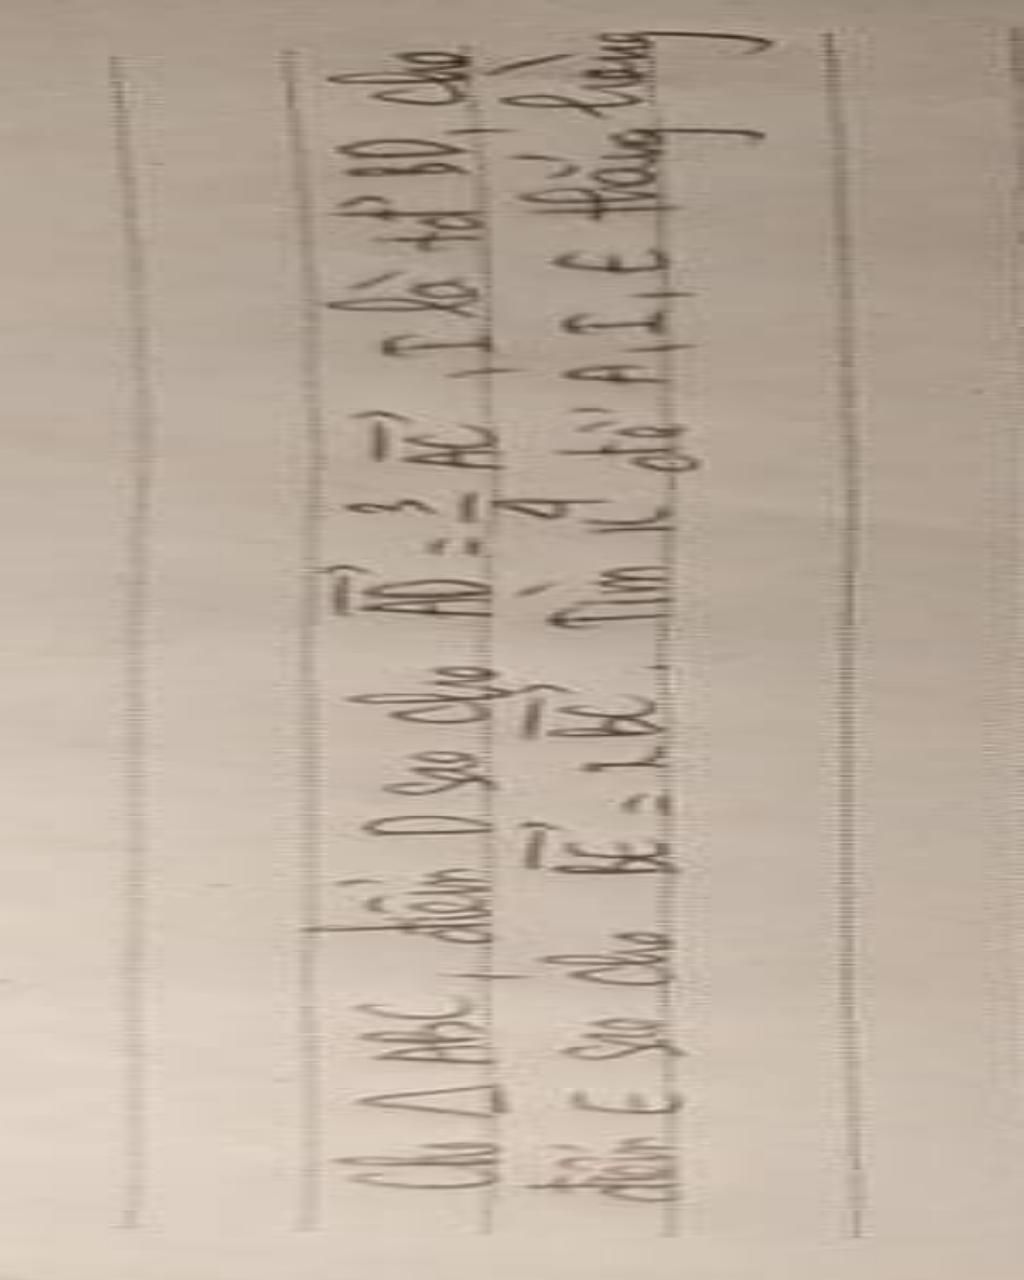 Cho Δ ABC, điểm D sao cho AD⃗ = 3/4 AC⃗, I là tđ BD, cho
điểm E sao cho BE⃗ = x BC⃗. Tìm x để A, I, E thẳng hàng